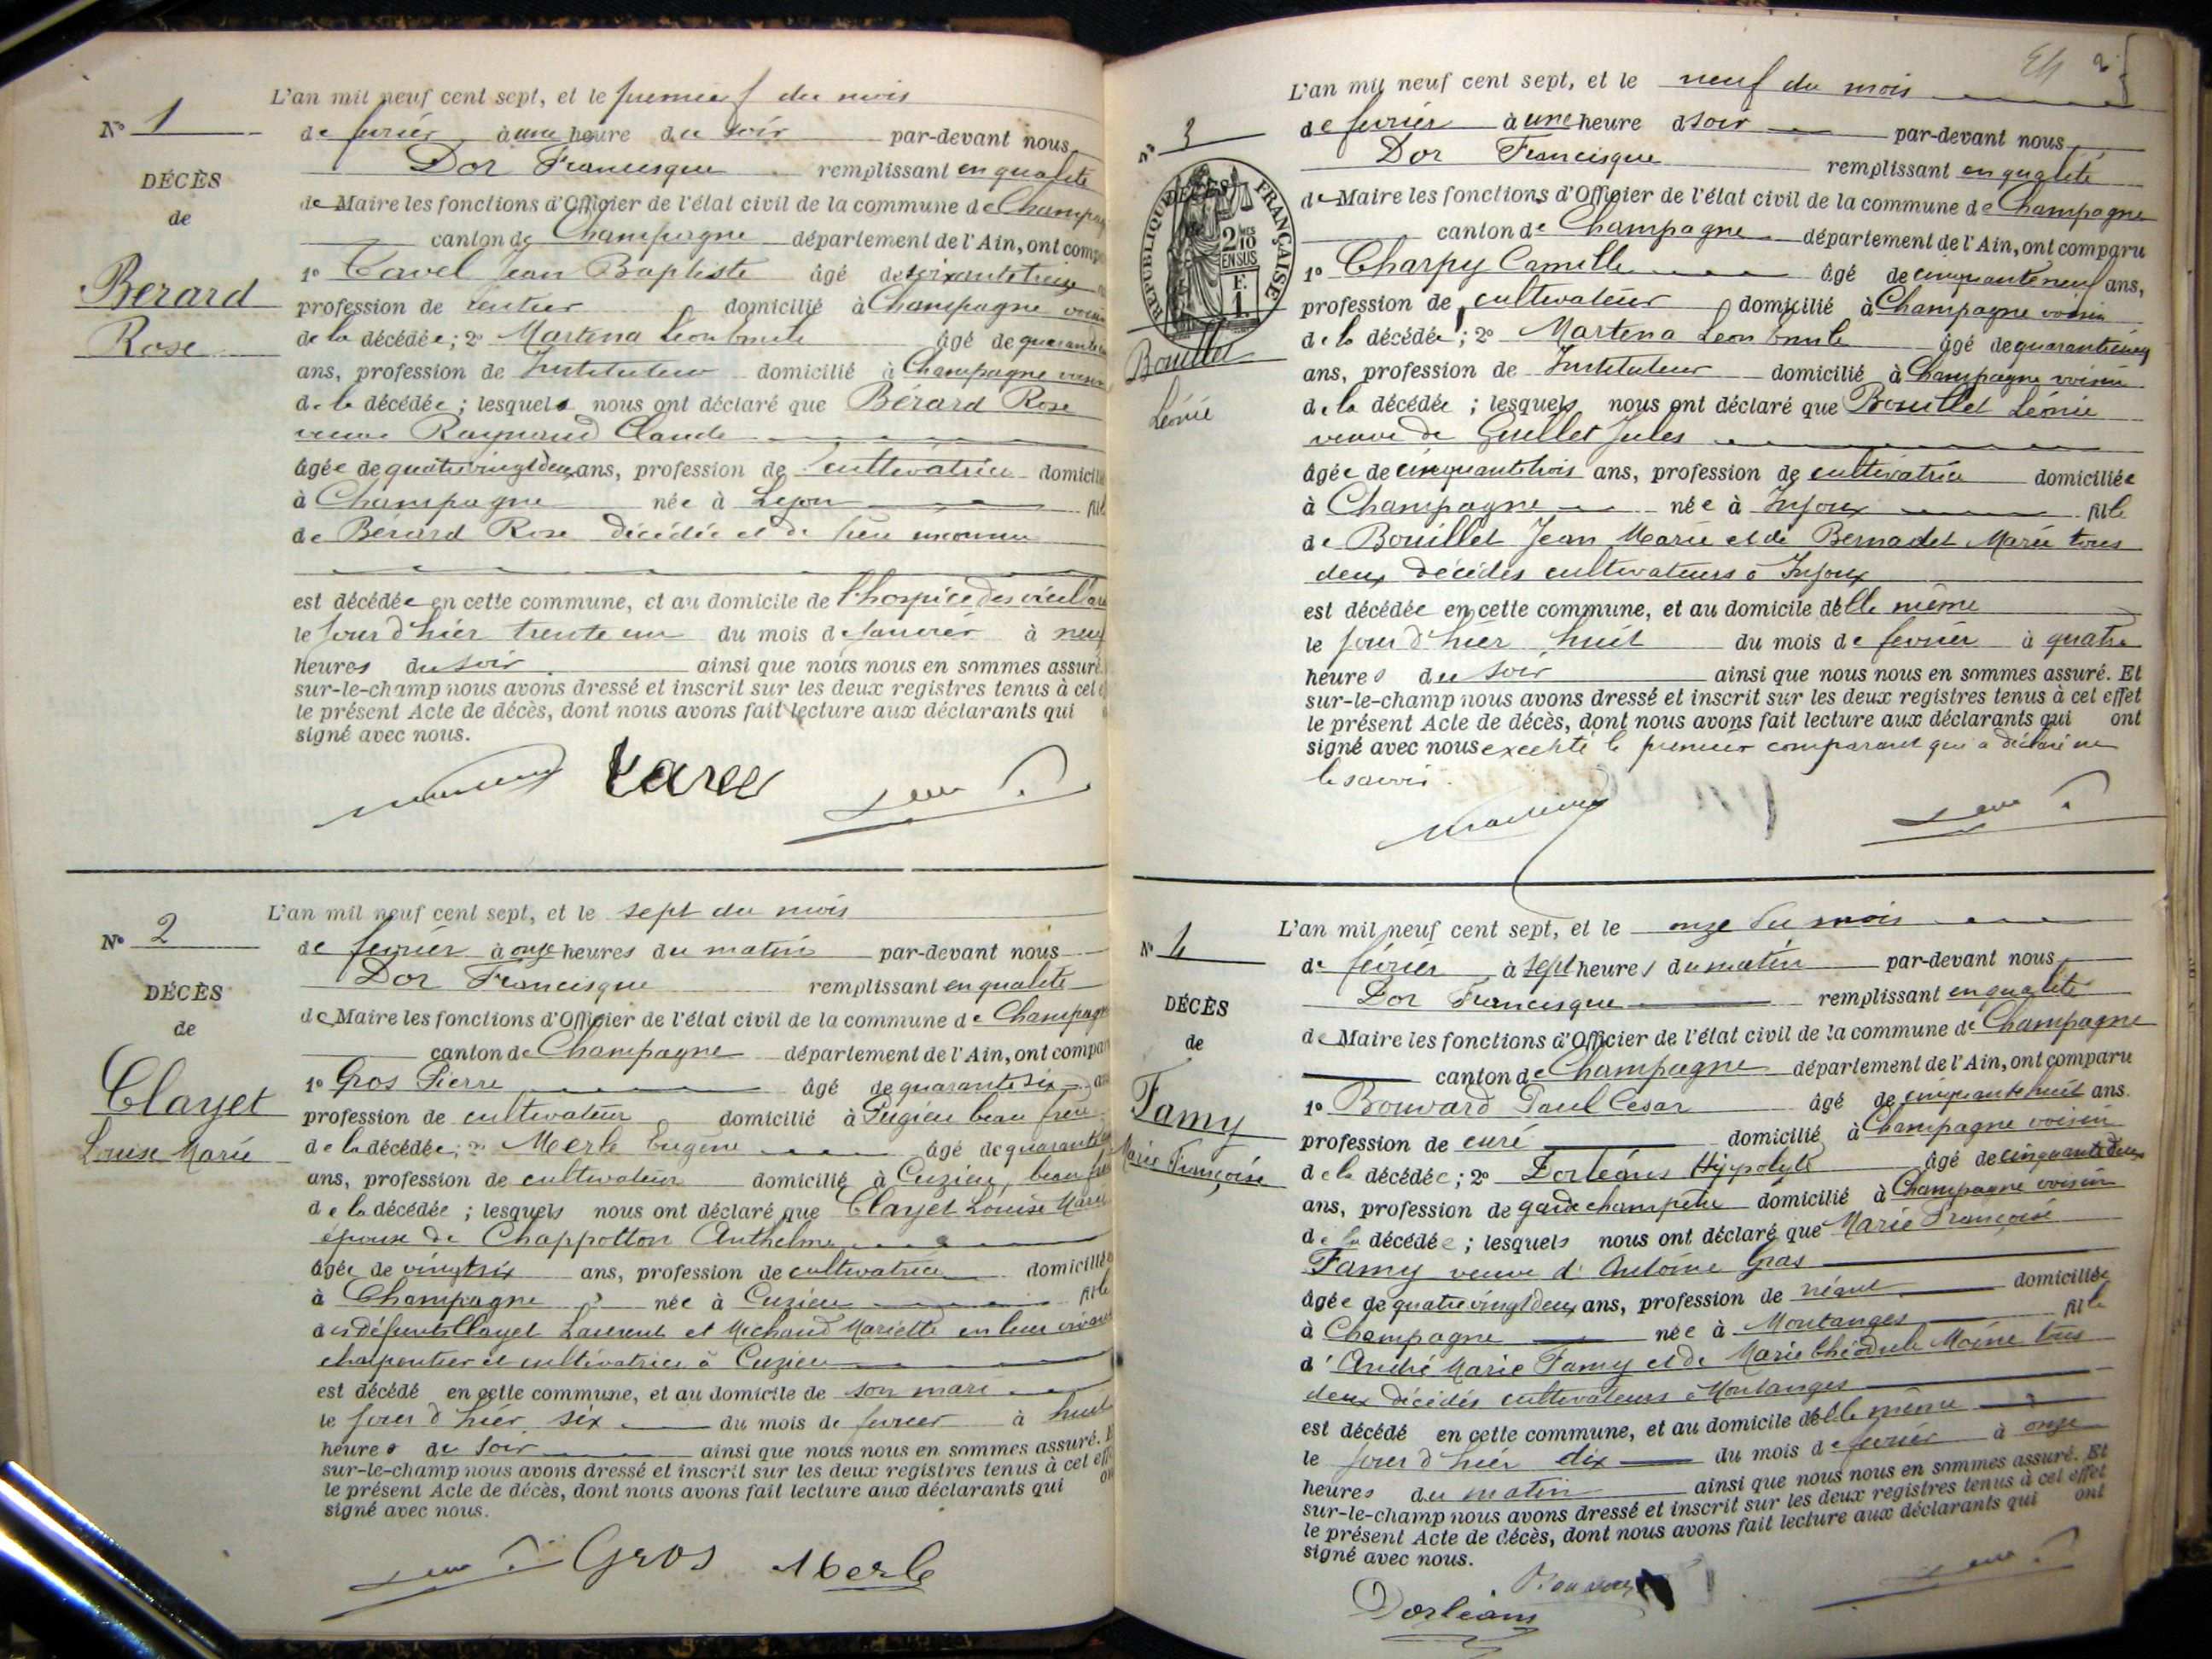 L'an mil neuf cent sept, et le premier du mois
N° 1
de fevrier à une heure du soir par-devant nous
Dor Francisque remplissant en qualité
DÉCÈS
de Maire les fonctions d'Officier de l'état civil de la commune de Champagne
de
canton de Champagne département de l'Ain, ont comp
1° Cavel Jean Baptiste âgé de soixante treize
Berard
profession de rentier domicilié à Champagne voisin
Rose
de la décédée; 2° Martena Léon Emile âgé de quarante
ans, profession de Instituteur domicilié à Champagne voisin
de la décédée; lesquels nous ont déclaré que Bérard Rose
veuve Raynaud Claude
âgée de quatrevingtdeux ans, profession de cultivatrice domicilié
à Champagne née à Lyon fil
de Bérard Rose décédée et de père inconnu
est décédée en cette commune, et au domicile de l'hospice des vieillards
le jour d'hier trente un du mois de janvier à neuf
heures du soir ainsi que nous nous en sommes assuré.
sur-le-champ nous avons dressé et inscrit sur les deux registres tenus à cet e
le présent Acte de décès, dont nous avons fait lecture aux déclarants qui
signé avec nous.
L'an mil neuf cent sept, et le sept du mois
N° 2
de fevrier à onze heures du matin par-devant nous
Dor Francisque remplissant en qualité
DÉCÈS
de Maire les fonctions d'Officier de l'état civil de la commune de Champagne
de
canton de Champagne département de l'Ain, ont compar
1° Gros Pierre âgé de quarante six an
Clayet
profession de cultivateur domicilié à Pugieu beau frère
Louise Marie
de la décédée; 2° Merle Eugène âgé de quarante
ans, profession de cultivateur domicilié à Cuzieu, beau frère
de la décédée; lesquels nous ont déclaré que Clayet Louise Marie
épouse de Chappotton Anthelme
âgée de vingtsix ans, profession de cultivatrice domiciliée
à Champagne née à Cuzieu fille
des défunts Clayet Laurent et Michaud Mariette en leur vivant
charpentier et cultivatrice à Cuzieu
est décédé en cette commune, et au domicile de son mari
le jour d'hier six du mois de fevrier à huit
heures du soir ainsi que nous nous en sommes assuré. E
sur-le-champ nous avons dressé et inscrit sur les deux registres tenus à cet eff
le présent Acte de décès, dont nous avons fait lecture aux déclarants qui on
signé avec nous.
Gros Merle
2
L'an mil neuf cent sept, et le neuf du mois
N° 3
de fevrier à une heure d soir par-devant nous
Dor Francisque remplissant en qualité
DÉCÈS
RÉPUBLIQUE FRANÇAISE
2/10 EN SUS
F. 1
de Maire les fonctions d'Officier de l'état civil de la commune de Champagne
canton de Champagne département de l'Ain, ont comparu
1° Charpy Camille âgé de cinquante neuf ans,
profession de cultivateur domicilié à Champagne voisin
Bouillet
de la décédée; 2° Martena Léon Emile âgé de quarantecinq
ans, profession de Instituteur domicilié à Champagne voisin
Léonie
de la décédée; lesquels nous ont déclaré que Bouillet Léonie
veuve de Guillet Jules
âgée de cinquantetrois ans, profession de cultivatrice domiciliée
à Champagne née à Injoux fille
de Bouillet Jean Marie et de Bernadet Marie tous
deux décédés cultivateurs à Injoux
est décédée en cette commune, et au domicile d'elle même
le jour d'hier huit du mois de fevrier à quatre
heures du soir ainsi que nous nous en sommes assuré. Et
sur-le-champ nous avons dressé et inscrit sur les deux registres tenus à cet effet
le présent Acte de décès, dont nous avons fait lecture aux déclarants qui ont
signé avec nous excepté le premier comparant qui a déclaré ne
le savoir.
L'an mil neuf cent sept, et le onze du mois
N° 4
de février à sept heures du matin par-devant nous
Dor Francisque remplissant en qualité
DÉCÈS
de Maire les fonctions d'Officier de l'état civil de la commune de Champagne
de
canton de Champagne département de l'Ain, ont comparu
1° Bouvard Paul Cesar âgé de cinquante huit ans.
Famy
profession de curé domicilié à Champagne voisin
Marie Françoise
de la décédée; 2° Dorléans Hippolyte âgé de cinquantedeux
ans, profession de garde champêtre domicilié à Champagne voisin
de la décédée; lesquels nous ont déclaré que Marie Françoise
Famy veuve d'Antoine Gras
âgée de quatrevingtdeux ans, profession de néant domiciliée
à Champagne née à Montanges fille
d'André Marie Famy et de Marie Théodule Moine tous
deux décédés cultivateurs à Montanges
est décédé en cette commune, et au domicile d'elle même
le jour d'hier dix du mois de fevrier à onze
heures du matin ainsi que nous nous en sommes assuré. Et
sur-le-champ nous avons dressé et inscrit sur les deux registres tenus à cet effet
le présent Acte de décès, dont nous avons fait lecture aux déclarants qui ont
signé avec nous.
Dorléans